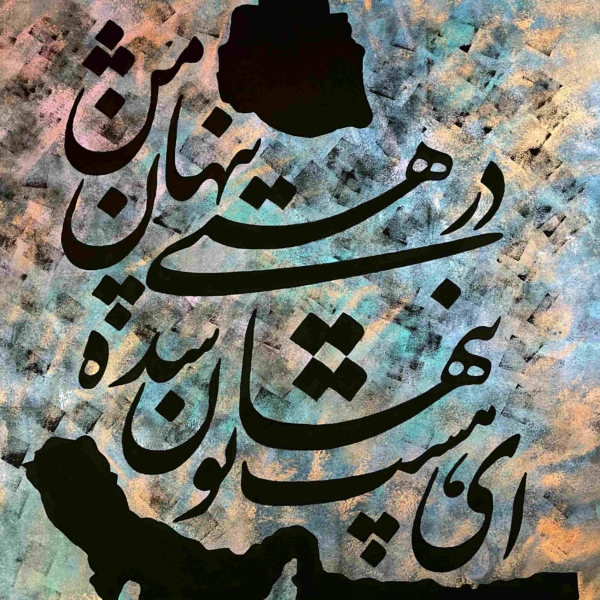 ای هست تو پنهان شده
در هستی پنهان من